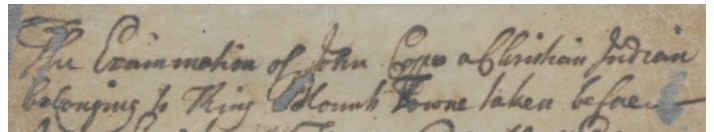 The Examination of John Cope a Christian Indian
belonging to King Blount Towne taken before